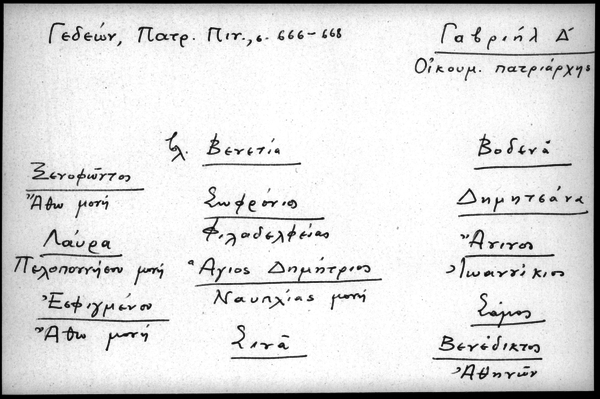 Γεδεών, Πατρ. Πιν., σ. 666-668
Γαβριήλ Δ'
Οἰκουμ. πατριάρχης
βλ. Βενετία
Βοδενᾶ
Ξενοφῶντος
Ἄθω μονή
Σωφρόνιος
Φιλαδελφείας
Δημητσάνα
Λαύρα
Πελοποννήσου μονή
Ἅγιος Δημήτριος
Ναυπλίας μονή
Ἄνινος
Ἰωαννίκιος
Ἐσφιγμένου
Ἄθω μονή
Σινᾶ
Σάμος
Βενέδικτος
Ἀθηνῶν